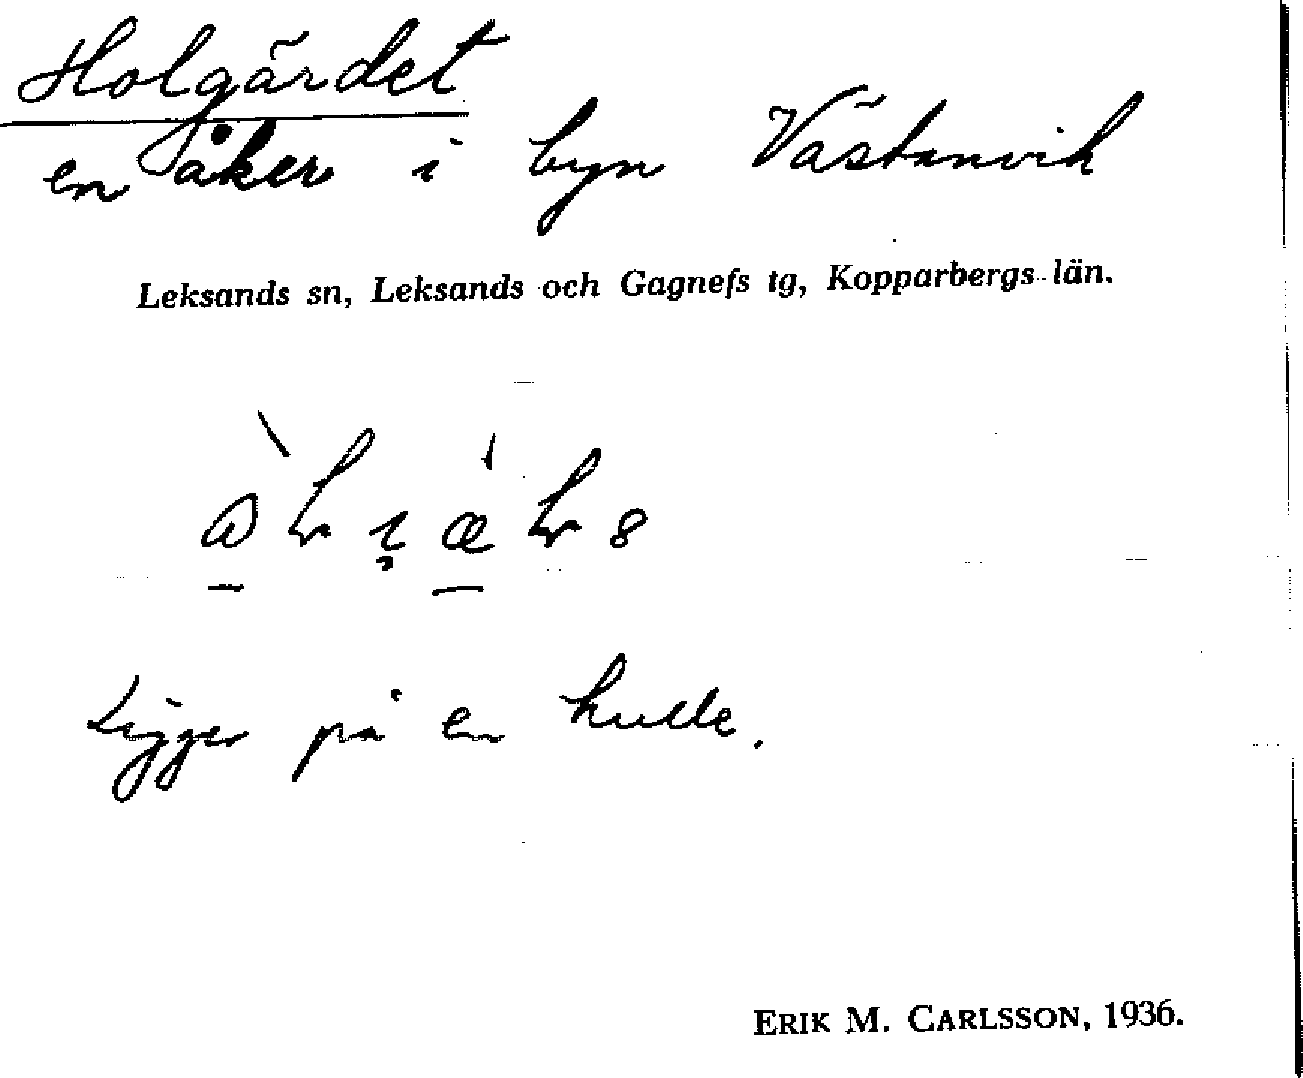 Holgärdet
en åker i byn Västanvik
Leksands sn, Leksands och Gagnefs tg, Kopparbergs län.
Ligger på en kulle.
ERIK M. CARLSSON, 1936.